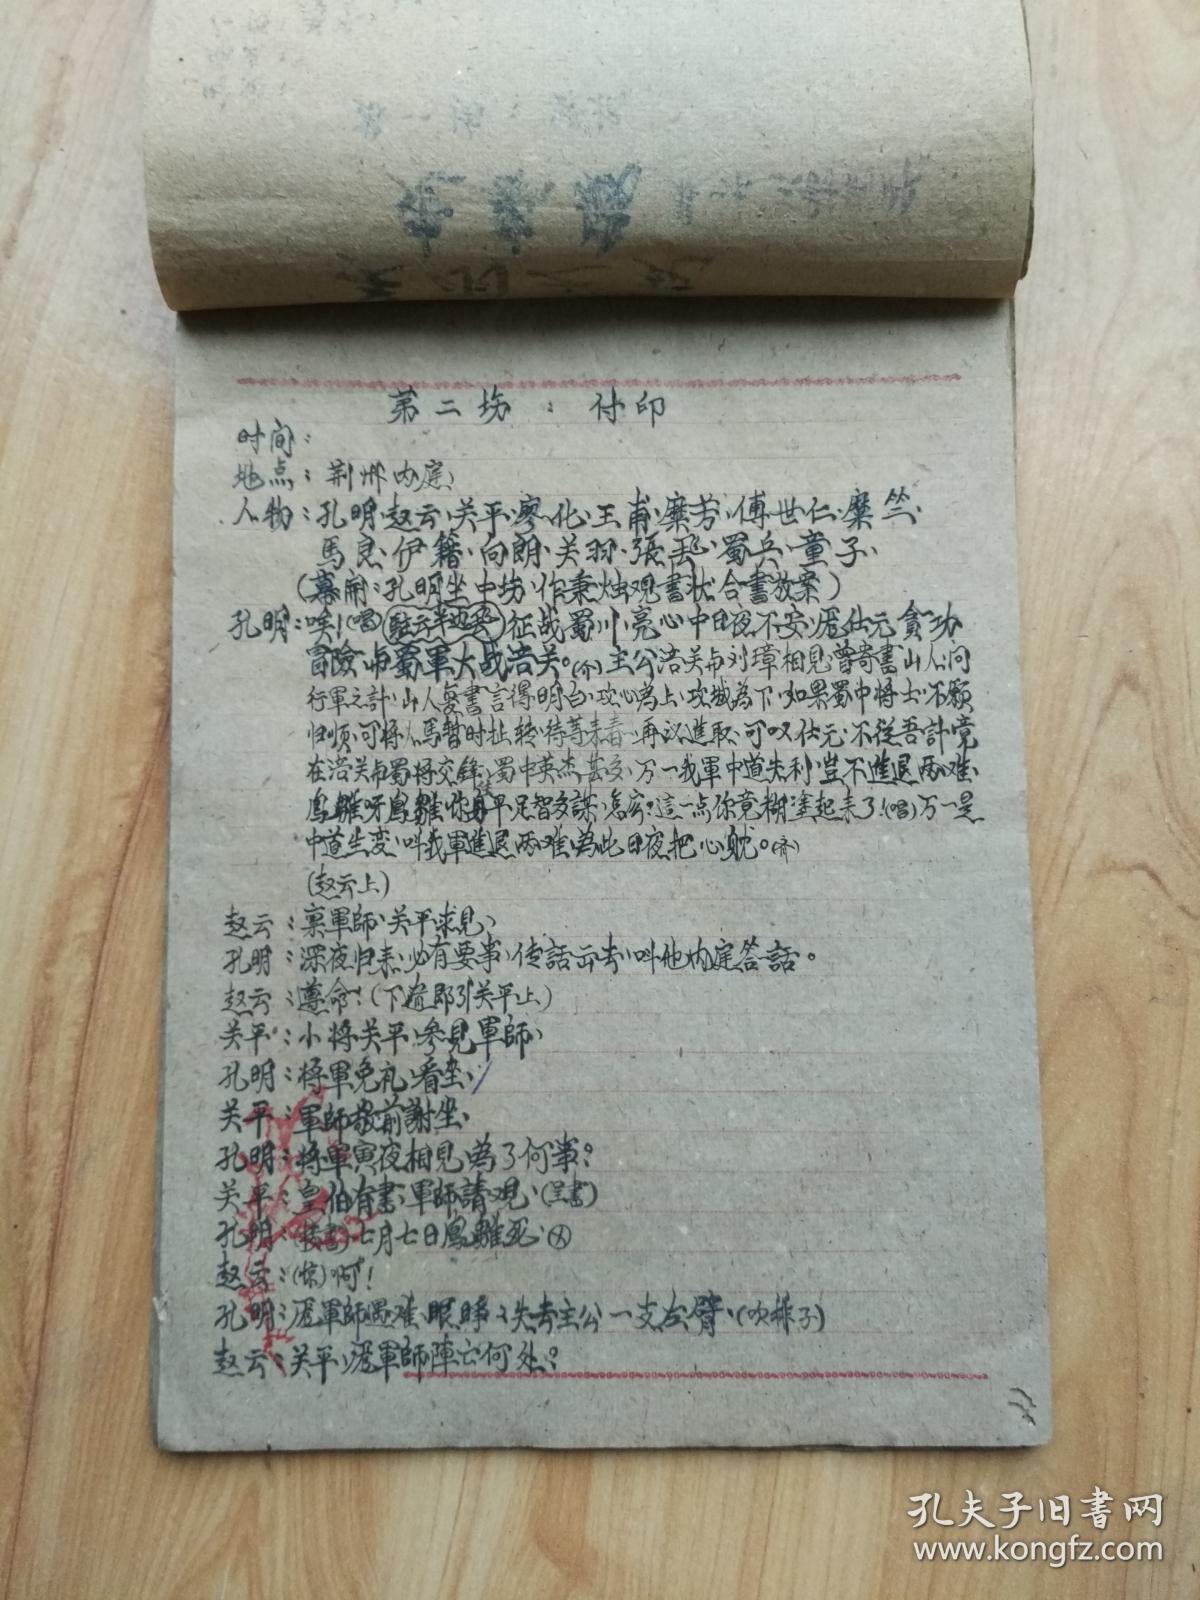 第二场：付印
时间：
地点：荆州内庭、
人物：孔明、赵云、关平、廖化、王甫、糜芳、傅世仁、糜竺、
馬良、伊籍、向朗、关羽、張飛、蜀兵、童子、
（幕開：孔明坐中场、作秉烛观書状、合書放案）
孔明：唉！（唱）征战蜀川、亮心中日夜不安、龐仕元貪功
冒險、与蜀軍大战涪关。主公涪关与刘璋相見、曾寄書山人、问
行軍之計、山人复書言得明白、攻心為上、攻城為下、如果蜀中将士、不願
归顺、可将人馬暂时扯转、待等来春、再议進取、可叹仕元、不從吾計、竟
在涪关与蜀将交鋒、蜀中英杰甚多、万一我軍中道失利、豈不進退两难、
鳳雛呀鳳雛、你平足智多謀、怎這一点你竟糊塗起来了！（唱）万一是
中道生変、叫我軍進退两难、為此日夜把心躭。
（赵云上）
赵云：禀軍師、关平求見、
孔明：深夜归来、必有要事、传話出去、叫他内庭答話。
赵云：遵命！（下、随即引关平上）
关平：小将关平、參見軍師、
孔明：将軍免礼、看坐、
关平：軍師毂前謝坐、
孔明：将軍寅夜相見、為了何事？
关平：皇伯有書、軍師請观、（呈書）
孔明：（接書）七月七日鳳雛死、
赵云：（惊）啊！
孔明：龐軍師遇难、眼睁睁失去主公一支左臂、（吹排子）
赵云：关平、龐軍師陣亡何处？
孔夫子旧书网
www.kongfz.com